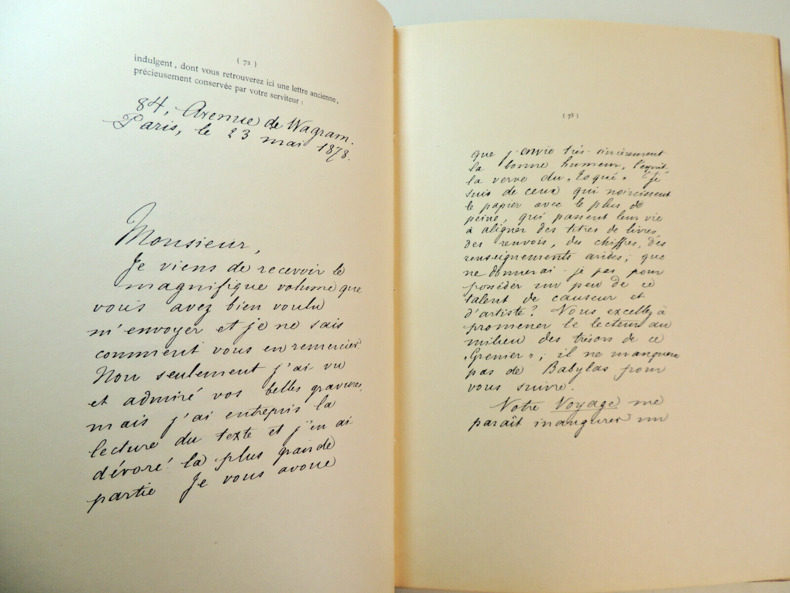 ( 72 )
indulgent, dont vous retrouverez ici une lettre ancienne,
précieusement conservée par votre serviteur :
84, Avenue de Wagram.
Paris, le 23 mai 1878.
Monsieur,
Je viens de recevoir le
magnifique volume que
vous avez bien voulu
m'envoyer et je ne sais
comment vous en remercier.
Non seulement j'ai vu
et admiré vos belles gravures,
mais j'ai entrepris la
lecture du texte et j'en ai
dévoré la plus grande
partie Je vous avoue
que j'envie très sincèrement
la bonne humeur, l'esprit
la verve du « Toqué » Je
suis de ceux qui noircissent
le papier avec le plus de
peine, qui passent leur vie
à aligner des titres de livres,
des renvois, des chiffres, des
renseignements arides; que
ne donnerai-je pas pour
posséder un peu de ce
talent de causeur et
d'artiste? Vous excellez à
promener le lecteur au
milieu des trésors de ce
« Grenier »; il ne manquera
pas de Babylas pour
vous suivre.
Votre Voyage me
paraît inaugurer un